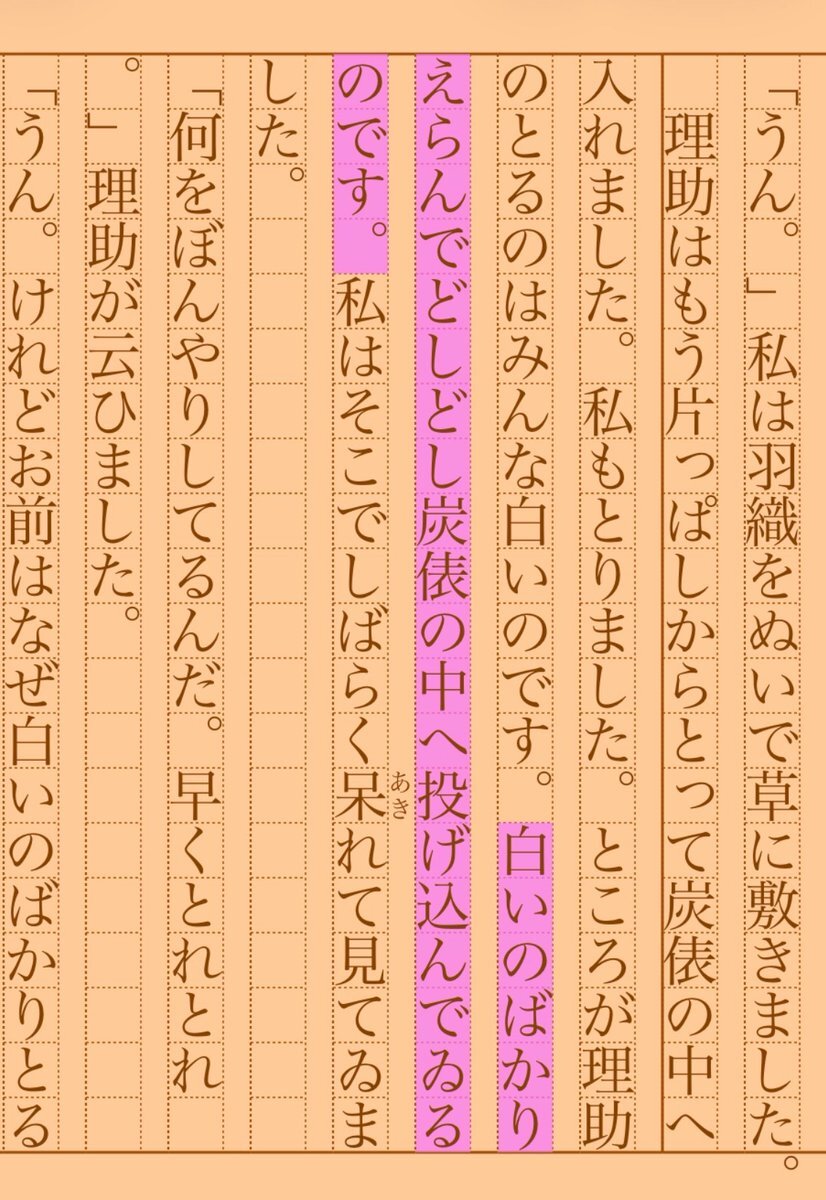 「うん。」私は羽織をぬいで草に敷きました。
理助はもう片っぱしからとって炭俵の中へ
入れました。私もとりました。ところが理助
のとるのはみんな白いのです。白いのばかり
えらんでどしどし炭俵の中へ投げ込んでゐる
のです。私はそこでしばらく呆れて見てゐま
あき
した。
「何をぼんやりしてるんだ。早くとれとれ
。」理助が云ひました。
「うん。けれどお前はなぜ白いのばかりとる